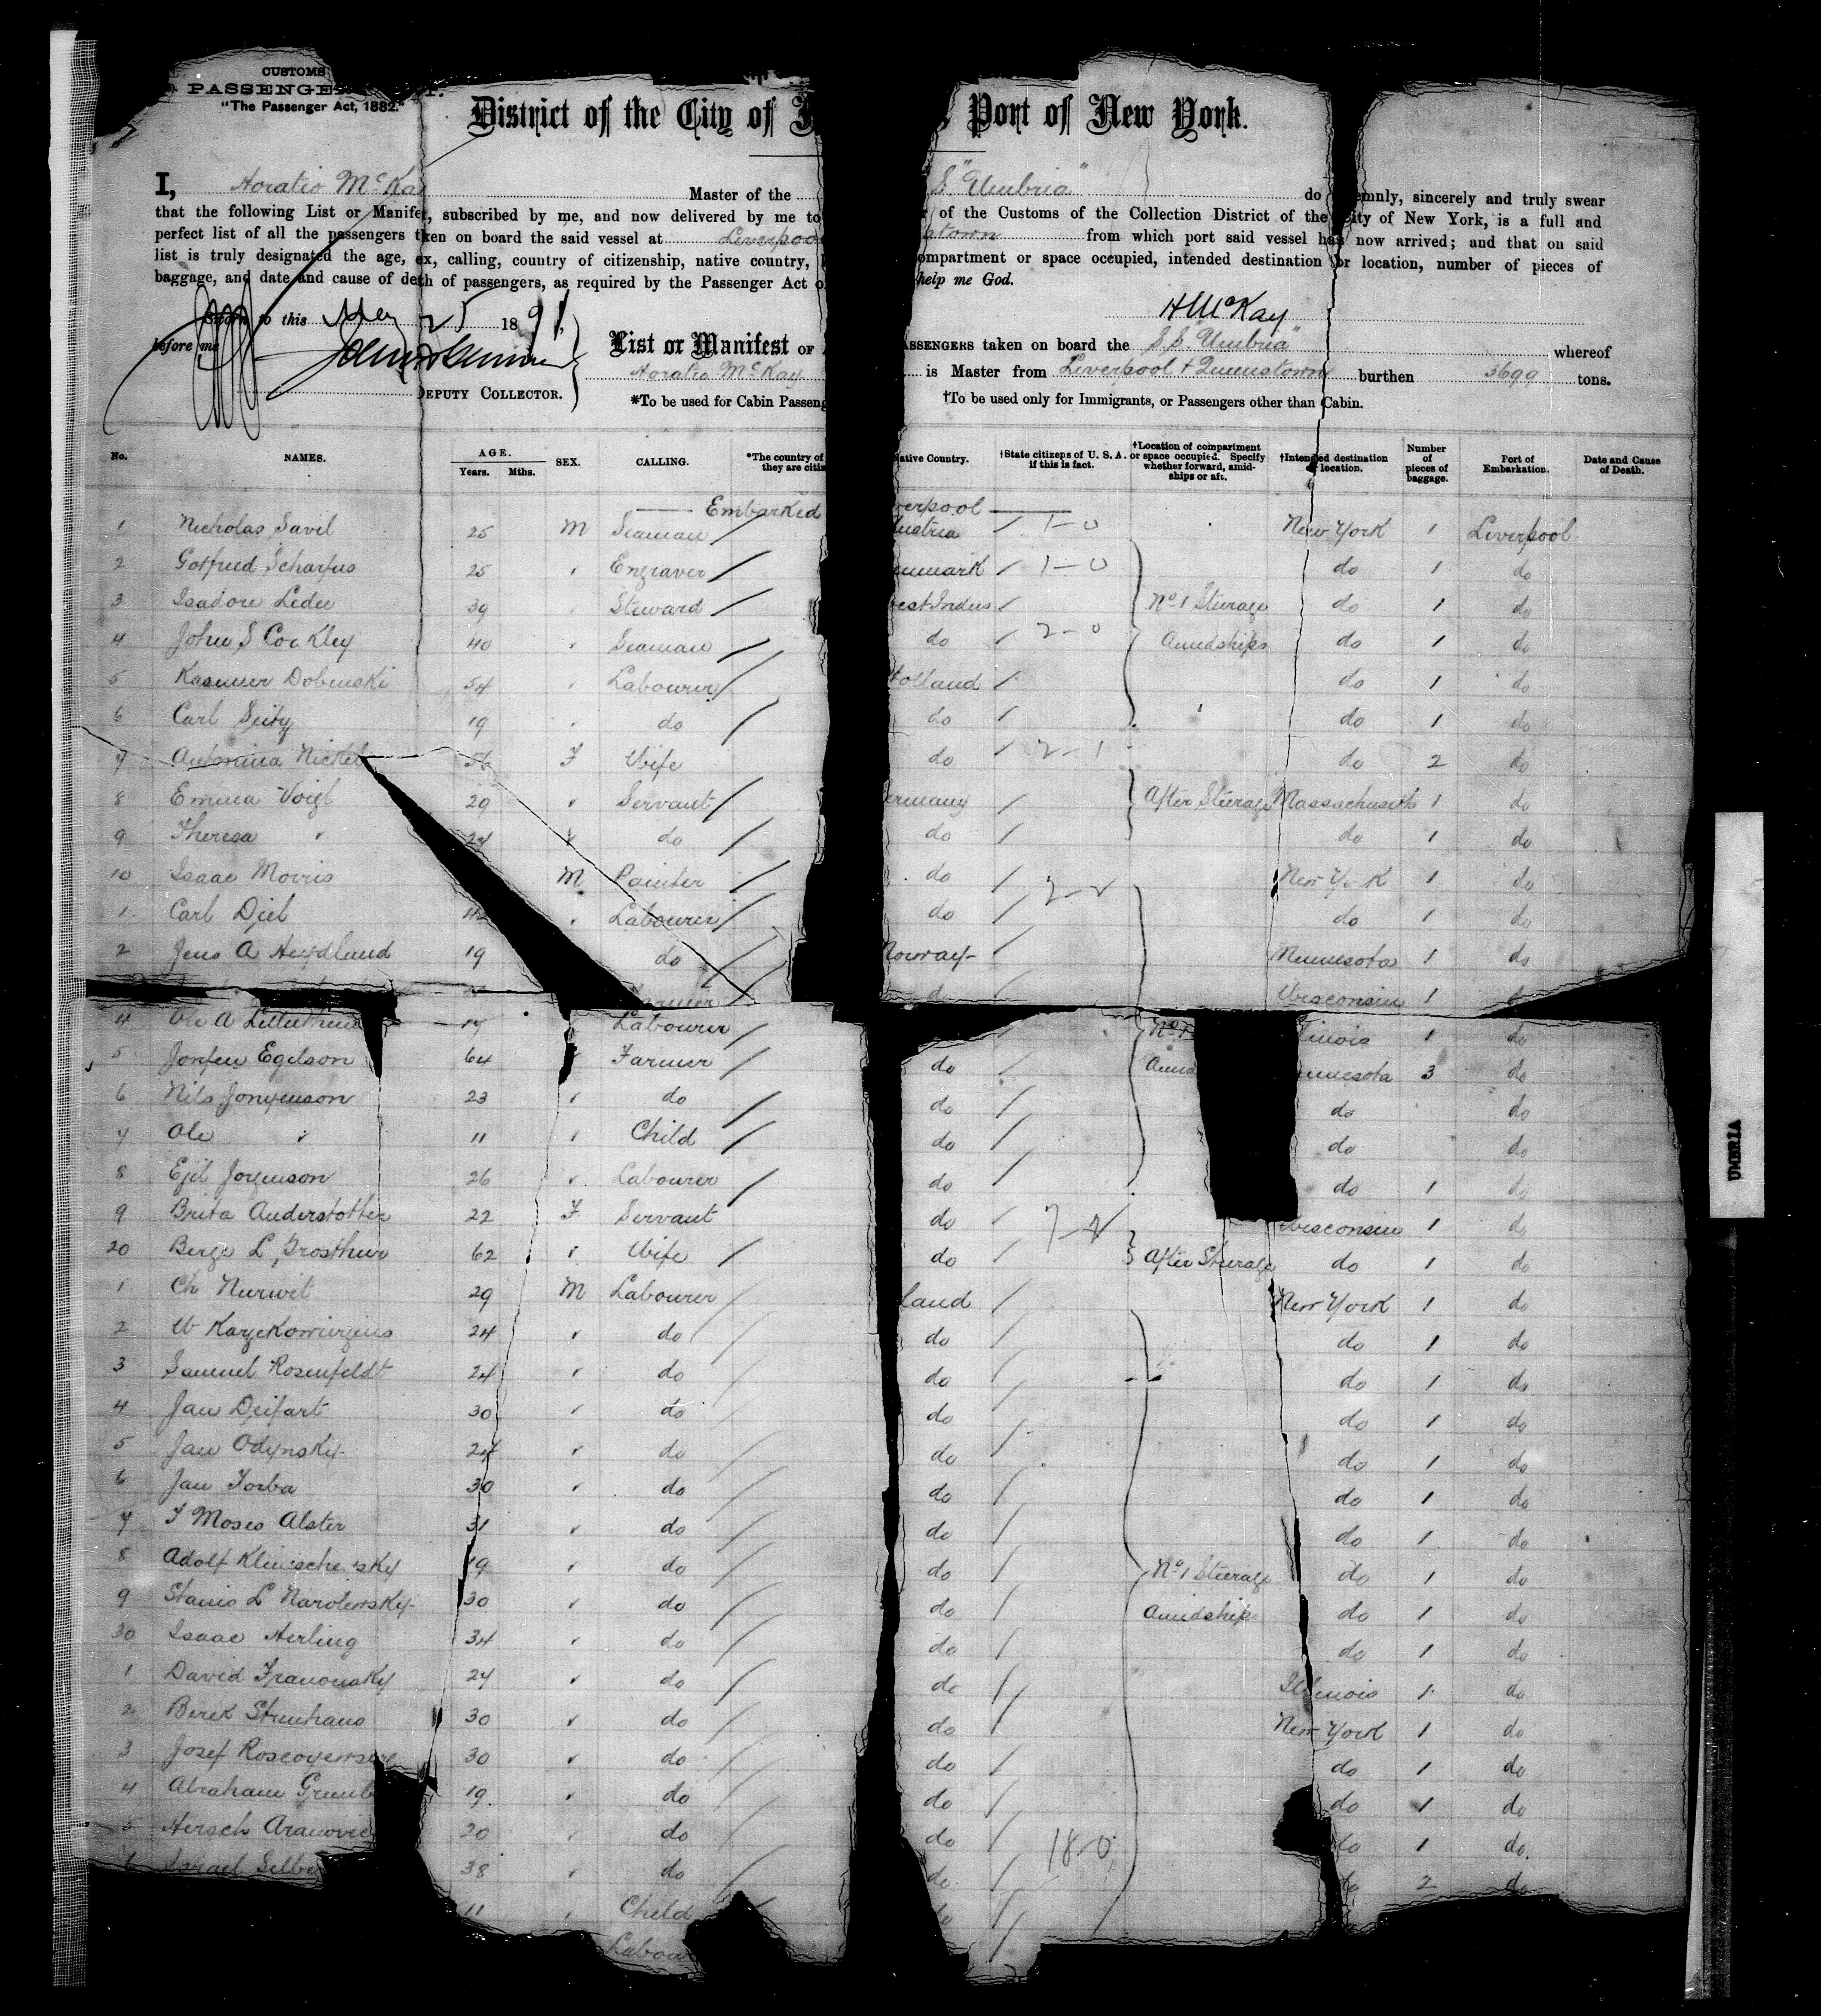 CUSTOMS
PASSENGE
"The Passenger Act, 1882."
District of the City of Port of New York.
I, Horatio McKa Master of the S. "Umbria" do emnly, sincerely and truly swear
that the following List or Manifes, subscribed by me, and now delivered by me to of the Customs of the Collection District of the City of New York, is a full and
perfect list of all the passengers taken on board the said vessel at Liverpool from which port said vessel has now arrived; and that on said
list is truly designated the age, sex, calling, country of citizenship, native country, ompartment or space occupied, intended destination or location, number of pieces of
baggage, and date and cause of death of passengers, as required by the Passenger Act help me God.
H McKay
to this May 25 1891
before me
DEPUTY COLLECTOR.
List or Manifest OF ASSENGERS taken on board the S.S. "Umbria" whereof
Horatio McKay is Master from Liverpool & Queenstown burthen 3699 tons.
*To be used for Cabin Passeng †To be used only for Immigrants, or Passengers other than Cabin.
No. NAMES. AGE. Years. Mths. SEX. CALLING. *The country of they are citiz ative Country. †State citizens of U. S. A. if this is fact. †Location of compartment or space occupied. Specify whether forward, amidships or aft. †Intended destination location. Number of pieces of baggage. Port of Embarkation. Date and Cause of Death.
Embarked verpool
1 Nicholas Savil 25 M Seaman ustria 1-0 New York 1 Liverpool
2 Gotfried Scharfus 25 " Engraver nmark 1-0 do 1 do
3 Isadore Leder 39 " Steward est Indies No 1 Steerage do 1 do
4 John S Cockley 40 " Seaman do 2-0 Amidships do 1 do
5 Kasimer Dobinski 54 " Labourer Holland do 1 do
6 Carl Seity 19 " do do do 1 do
7 Antonina Nickel F Wife do 2-1 do 2 do
8 Emma Voigt 29 " Servant ermany After Steerage Massachusetts 1 do
9 Theresa " 24 " do do do 1 do
10 Isaac Morris M Painter do 2-2 New York 1 do
1 Carl Diel " Labourer do do 1 do
2 Jens A 19 do Norway Minnesota 1 do
Farmer Wisconsin 1
4 Ole A Labourer No 1 linois 1 do
5 Egilson 64 " Farmer do Amid nnesota 3 do
6 Nils 23 " do do do do
7 Ole " 11 " Child do do do
8 Ejil Jorgenson 26 " Labourer do do 1 do
9 Brita 22 F Servant do Wisconsin 1 do
20 L 62 " Wife do After Steerage do 1 do
1 Ch Nurwit 29 M Labourer land New York 1 do
2 W 24 " do do do 1 do
3 Samuel Rosenfeldt 24 " do do do 1 do
4 Jan Deifart 30 " do do do 1 do
5 Jan Odynsky 24 " do do do 1 do
6 Jan Torba 30 " do do do 1 do
7 Moses Alster 31 " do do do 1 do
8 Adolf 19 " do do No 1 Steerage do 1 do
9 Stanis L Narolewsky 30 " do do Amidship do 1 do
30 Isaac Herling 34 " do do do 1 do
1 David 24 " do do Illinois 1 do
2 Berek 30 " do do New York 1 do
3 Josef 30 " do do do 1 do
4 Abraham 19 " do do do 1 do
5 Hersch 20 " do do 18-0 do 1 do
6 Israel 38 " do do 2 do
11 " Child
Labour
UMBRIA